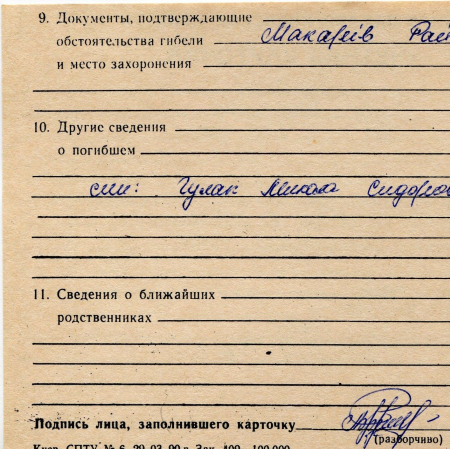 9. Документы, подтверждающие
обстоятельства гибели Макарів Рай
и место захоронения
10. Другие сведения
о погибшем
син: Гулак Микола Сидоров
11. Сведения о ближайших
родственниках
Подпись лица, заполнившего карточку
(разборчиво)
Киев. СПТУ № 6. 29.03.90 г. Зак. 409—100.000